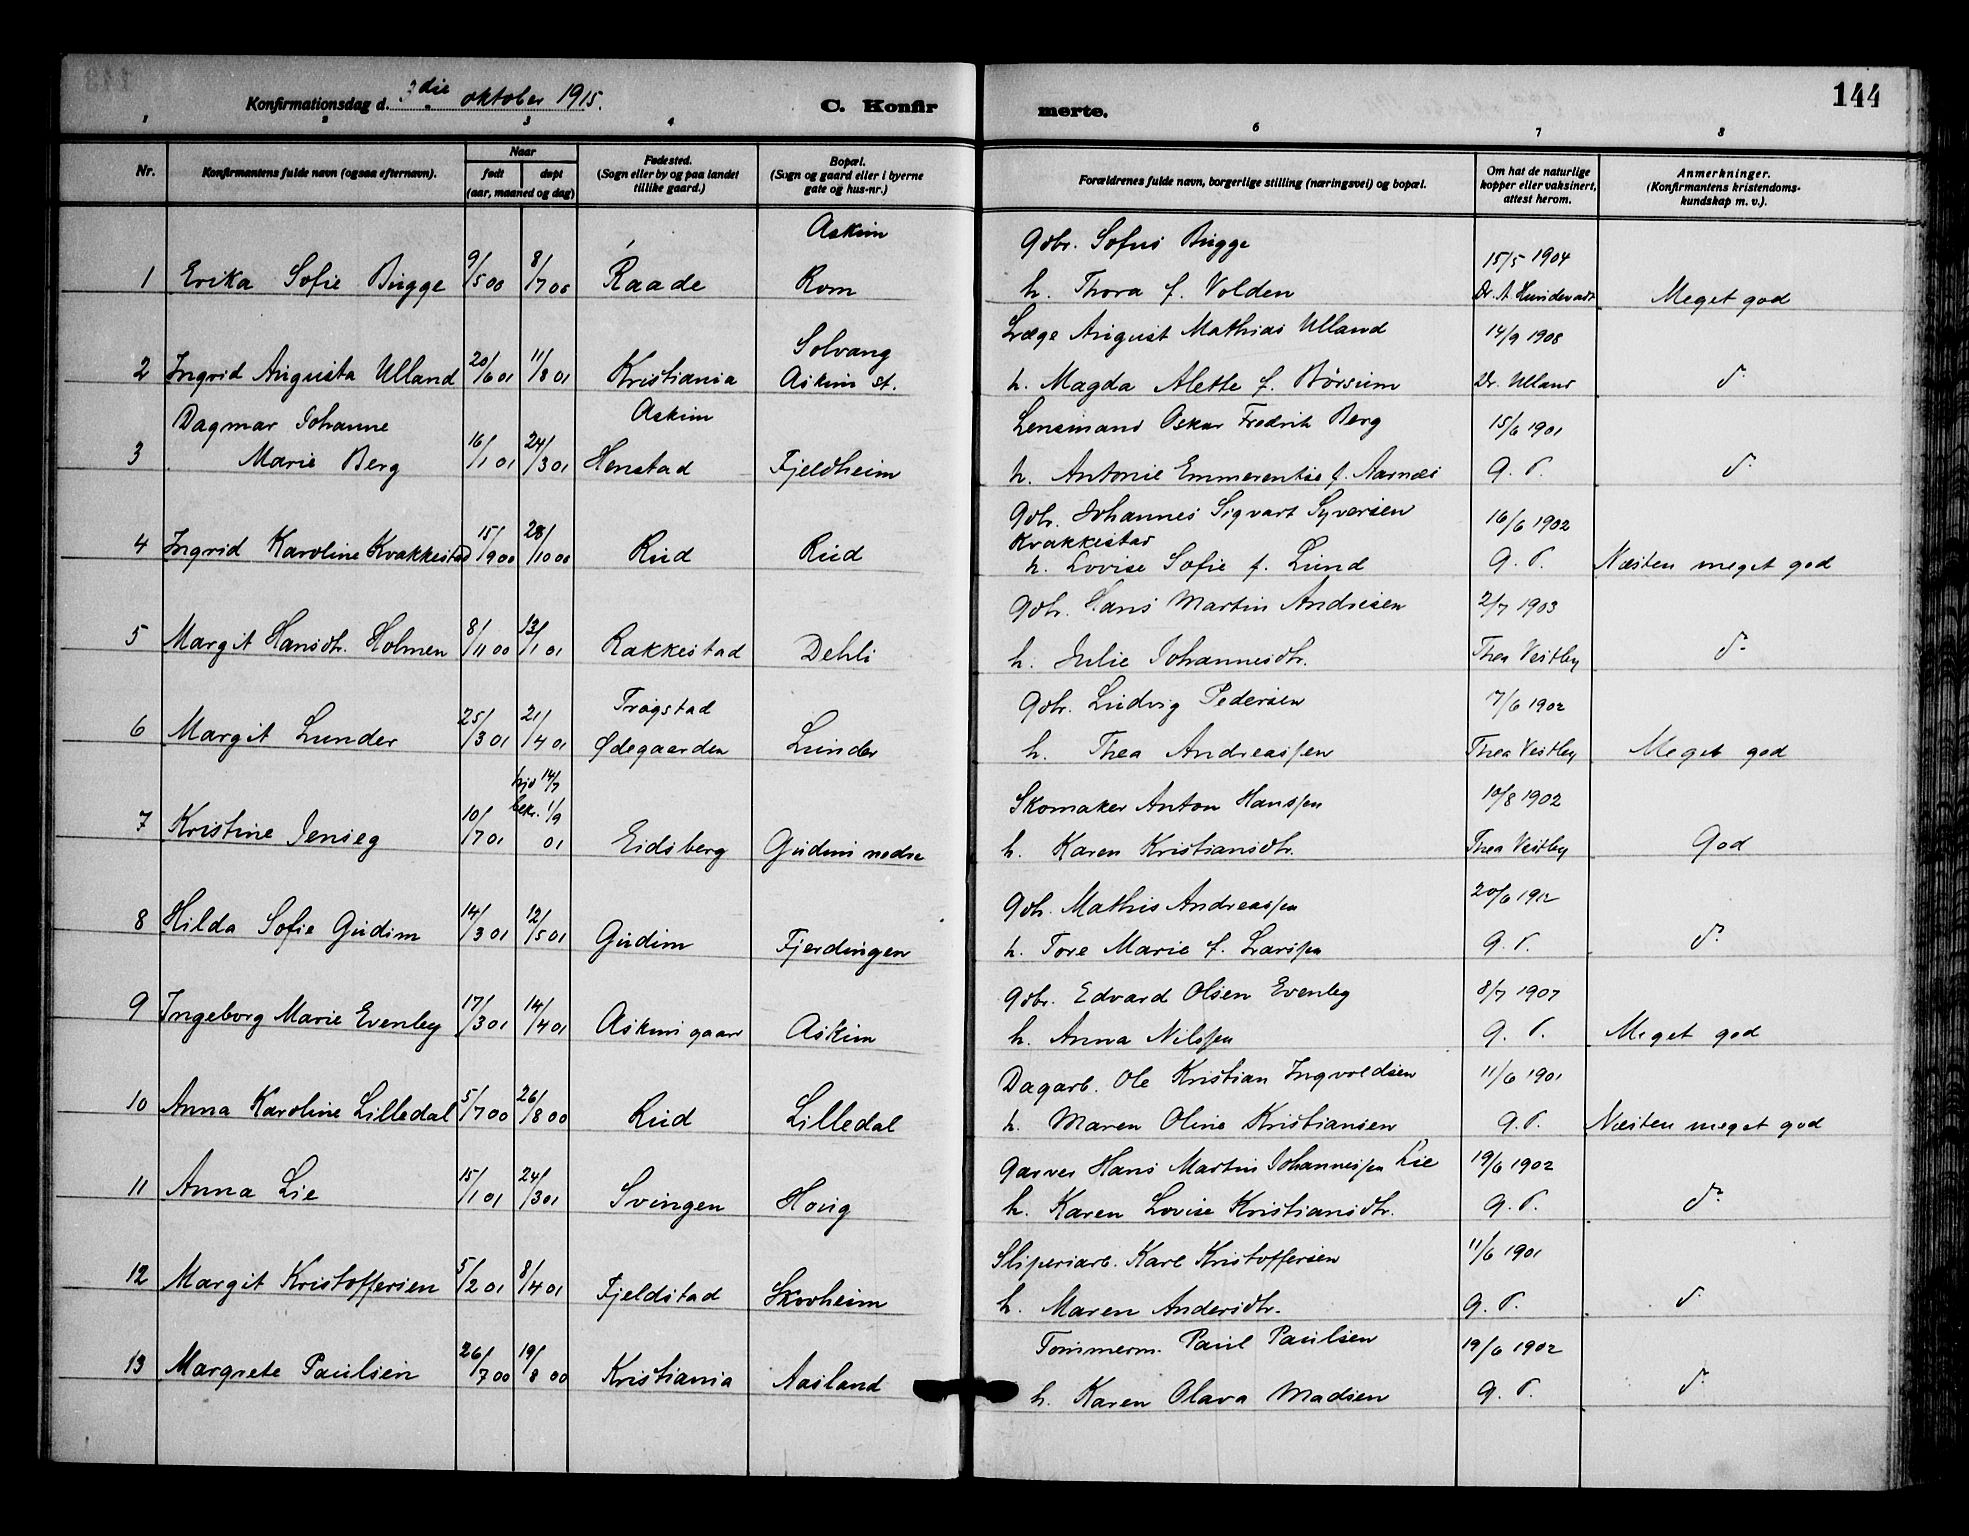 Konfirmationsdag d. 3die oktober 1915.
C. Konfirmerte.
144
1 2 3 4 6 7 8
Nr.
Konfirmantens fulde navn (ogsaa efternavn).
Naar
født døpt
(aar, maaned og dag)
Fødested.
(Sogn eller by og paa landet
tillike gaard.)
Bopæl.
(Sogn og gaard eller i byerne
gate og hus-nr.)
Forældrenes fulde navn, borgerlige stilling (næringsvei) og bopæl.
Om hat de naturlige
kopper eller vaksinert,
attest herom.
Anmerkninger.
(Konfirmantens kristendoms-
kundskap m. v.).
Askim
Gbr. Sofus Bugge
15/5 1904
1 Erika Sofie Bugge 9/5 00 8/7 00 Raade Rom
h. Thora f. Volden Meget god
Læge August Mathias Ulland 14/9 1908
Solvang
2 Ingrid Augusta Ulland 20/6 01 11/8 01 Kristiania Askim st.
h. Magda Alette f. Børsum Dr. Ulland d.
Dagmar Johanne Askim
Lensmand Oskar Fredrik Berg 15/6 1901
3 Marie Berg 16/1 01 24/3 01 Henstad Fjeldheim
h. Antonie Emmerentse f. Aarnæs G. T. d.
Gbr. Johannes Sigvart Syversen 16/6 1902
Kvakkestad
4 Ingrid Karoline Kvakkestad 15/9 00 28/10 00 Rud Rud
h. Lovise Sofie f. Lund G. T. Næsten meget god
Gbr. Hans Martin Andresen 2/7 1903
5 Margit Hansdtr. Holmen 8/11 00 13/1 01 Rakkestad Dehli
h. Julie Johannesdtr. Thea Vestby d.
Trøgstad
Gbr. Ludvig Pedersen 7/6 1902
6 Margit Lunder 25/3 01 21/4 01 Ødegaarden Lunder
h. Thea Andreassen Thea Vestby Meget god
hjd 14/7
bekr. 1/9
Skomaker Anton Hanssen 10/8 1902
7 Kristine Jenseg 10/7 01 01 Eidsberg Gudim nedre
h. Karen Kristiansdtr. Thea Vestby God
Gbr. Mathis Andreassen
8 Hilda Sofie Gudim 14/3 01 12/5 01 Gudim Fjerdingen
h. Tore Marie f. Larssen G. T. d.
Gbr. Edvard Olsen Evenby 8/7 1907
9 Ingeborg Marie Evenby 17/3 01 14/4 01 Askim gaard Askim
h. Anna Nilssen G. T. Meget god
Dagarb. Ole Kristian Ingvoldsen 11/6 1901
10 Anna Karoline Lilledal 5/7 00 26/8 00 Rud Lilledal
h. Maren Oline Kristiansen G. T. Næsten meget god
Garver Hans Martin Johannessen Lie 19/6 1902
11 Anna Lie 15/1 01 24/3 01 Svingen Houg
h. Karen Lovise Kristiansdtr. G. T. d.
Sliperiarb. Karl Kristoffersen 11/6 1901
12 Margit Kristoffersen 5/2 01 8/4 01 Fjeldstad Skovheim
h. Maren Andersdtr. G. T. d.
Tømmerm. Paul Paulsen 19/6 1902
13 Margrete Paulsen 26/7 00 19/8 00 Kristiania Aasland
h. Karen Olava Madsen G. T. d.